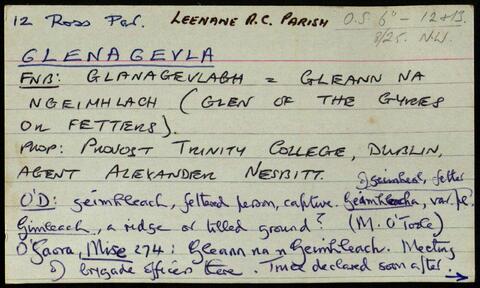 12 Ross Par. LEENANE R.C. PARISH O.S. 6" - 12+13.
8/25. N.W.
GLENAGEVLA
FNB: GLANAGEVLAGH = GLEANN NA
NGEIMHLACH (GLEN OF THE GYVES
OR FETTERS).
PROP: PROVOST TRINITY COLLEGE, DUBLIN,
AGENT ALEXANDER NESBITT.
geimheal, fetter
O'D: géimhleach, fettered person, captive. Geimhleacha, var. pl.
Gimleach, a ridge or tilled ground? (M. O'Toole)
O'Gaora, Mise 274: Gleann na nGeimhleach. Meeting
of brigade officers here. Truce declared soon after.